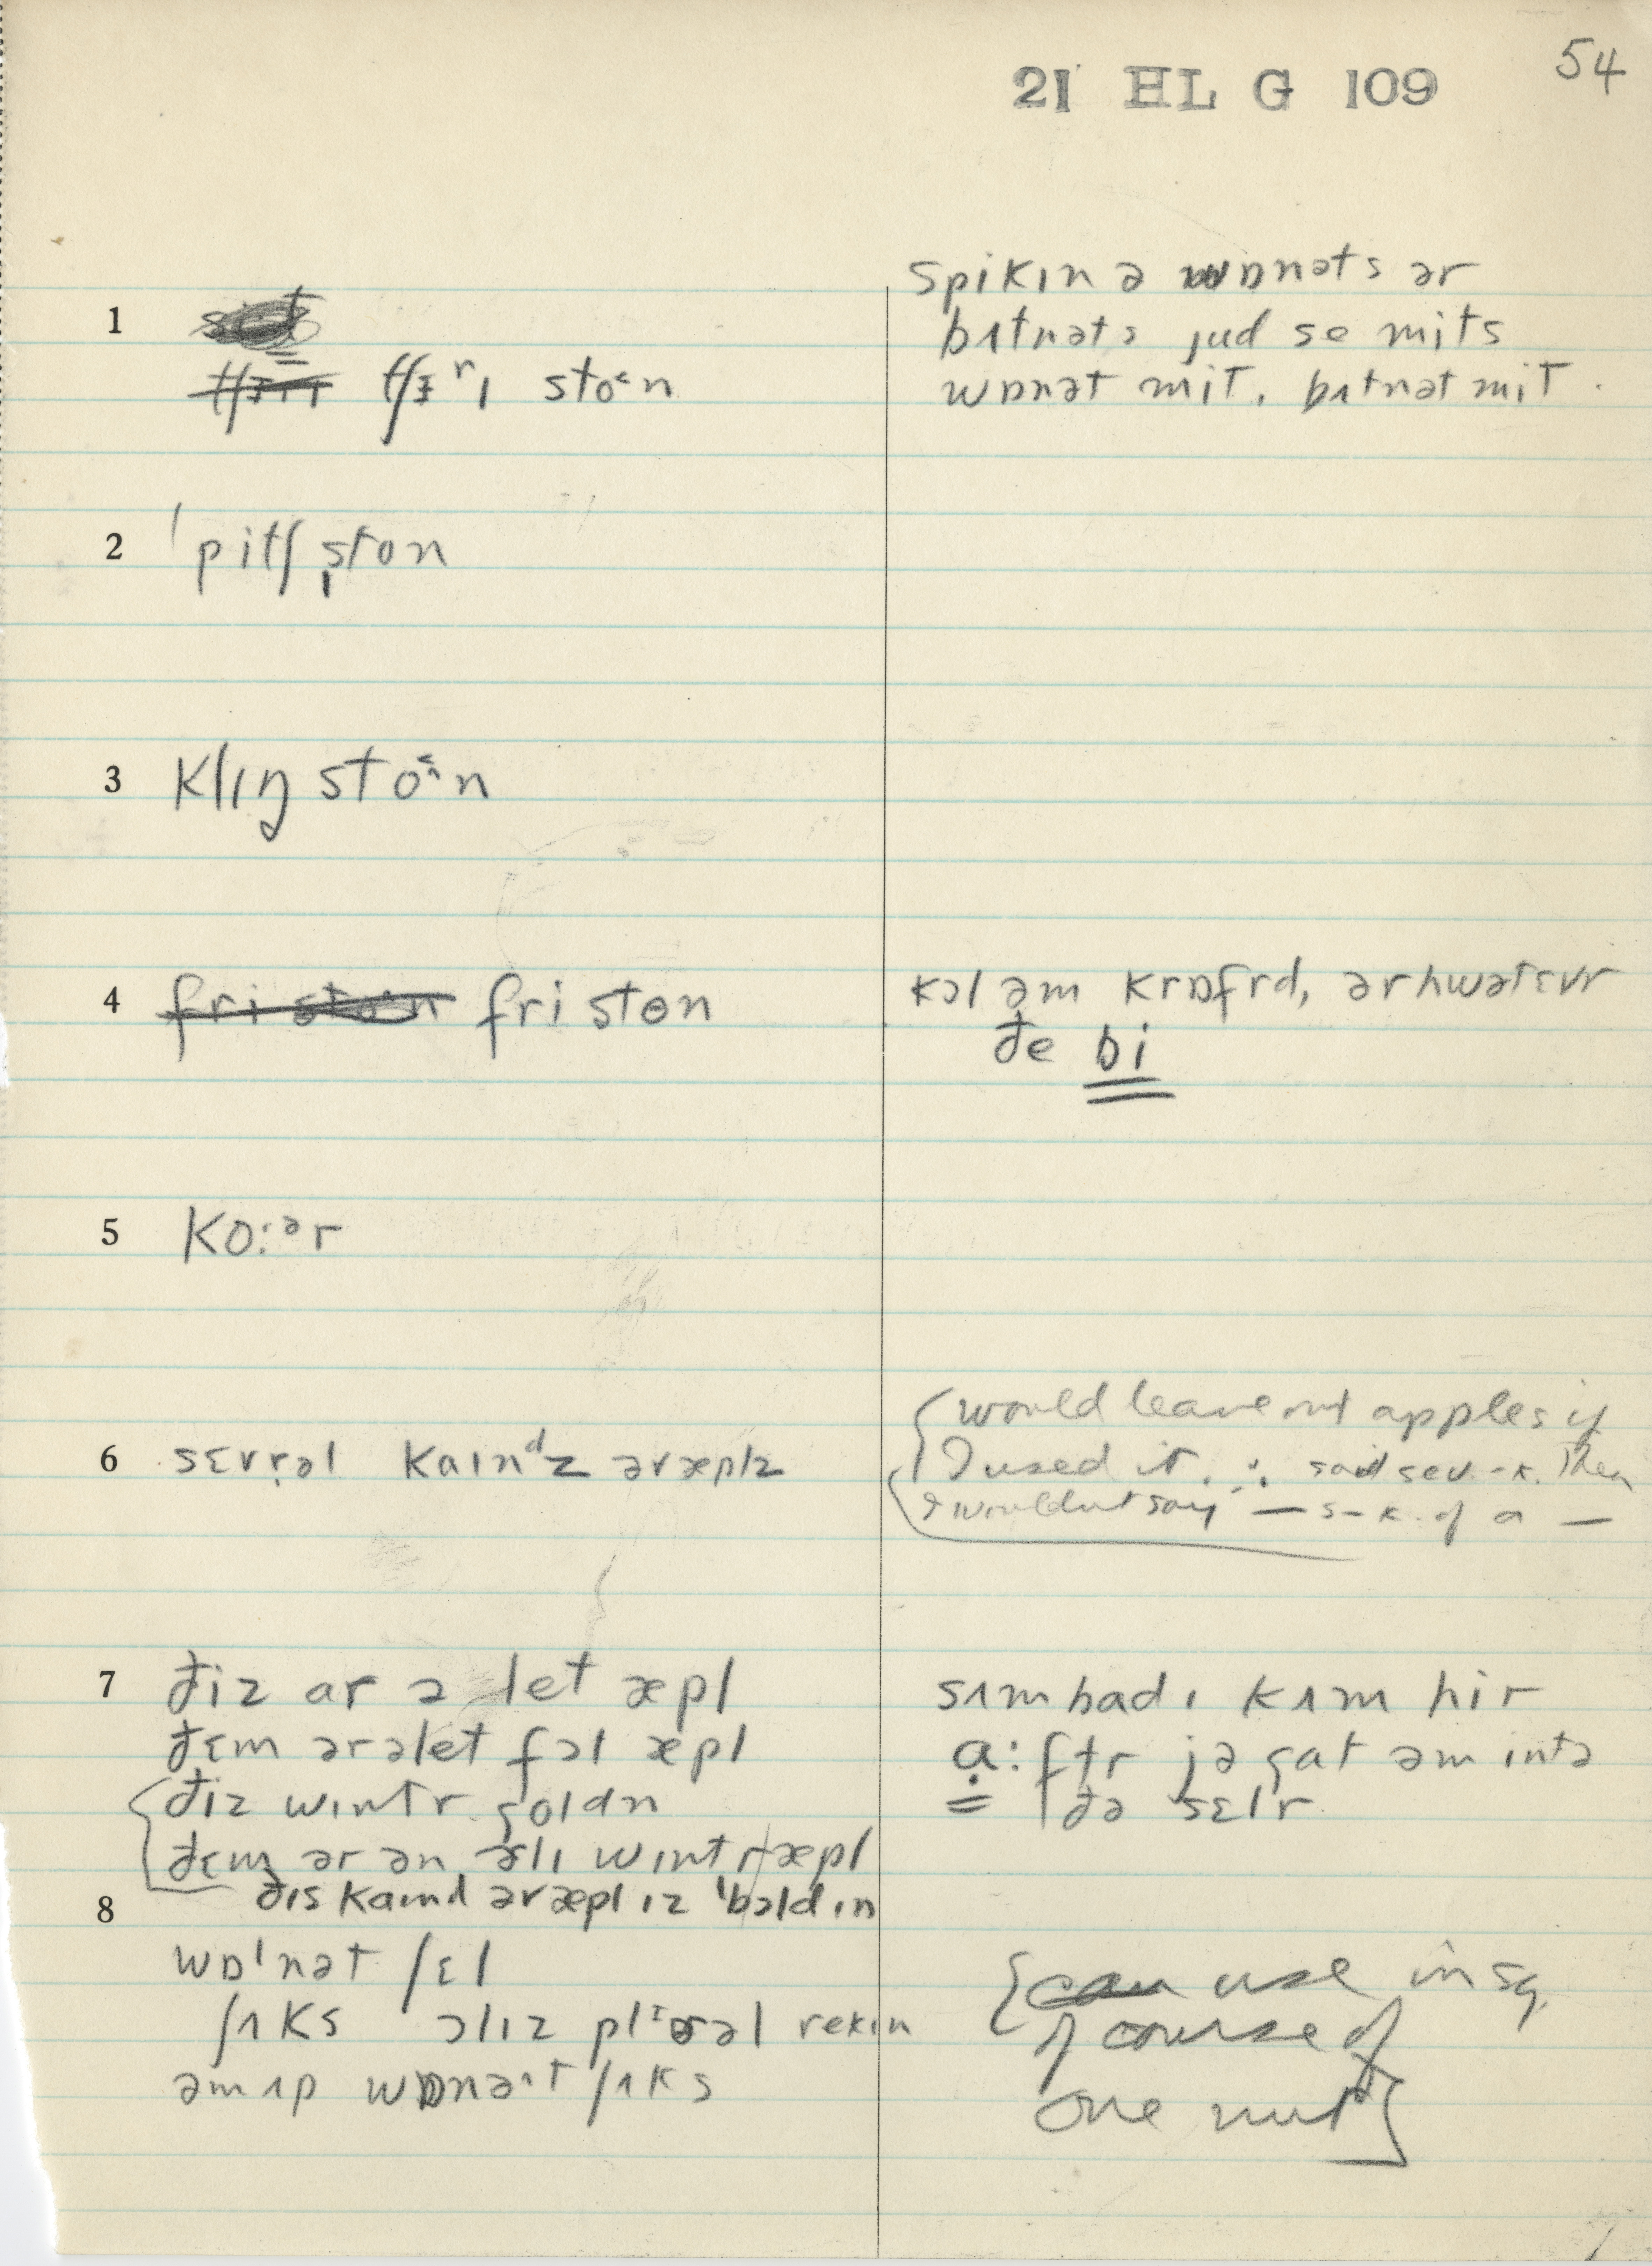 54
21 HL G 109
spikɪn ə wɒnəts ər
1
bʌtnəts jud se mits
tʃɜʳɪ sto˂n
wɒnət mit. bʌtnət mit.
2 ˈpitʃˌston
3 klɪŋ sto˂^n
4 fri ston
kɔl əm krɒfrd, ər hwətɛvr
ðe bi
5 ko:ᵊr
would leave out apples if
6 sɛvrəl kaɪnᵈz əræplz
I used it. ∴ said sev. - k. Then
I wouldnt say — s - k. of a —
7 ðiz ar ə let æpl
sʌmbadɪ kʌm hir
ðɛm ərəlet fɔl æpl
a:ftr jə gat əm intə
ðiz wɪntr goldn
ðə sɛlr
ðɛm ər ən ɜlɪ wɪntr æpl
8 ðɪs kaɪnd əræpl ɪz ˈbɔldɪn
wɒˈnət ʃɛl
use in sg.
ʃʌks
ɔlɪz
rekɪn
if course of
əm ʌp wɒnə^t ʃʌks
one nut